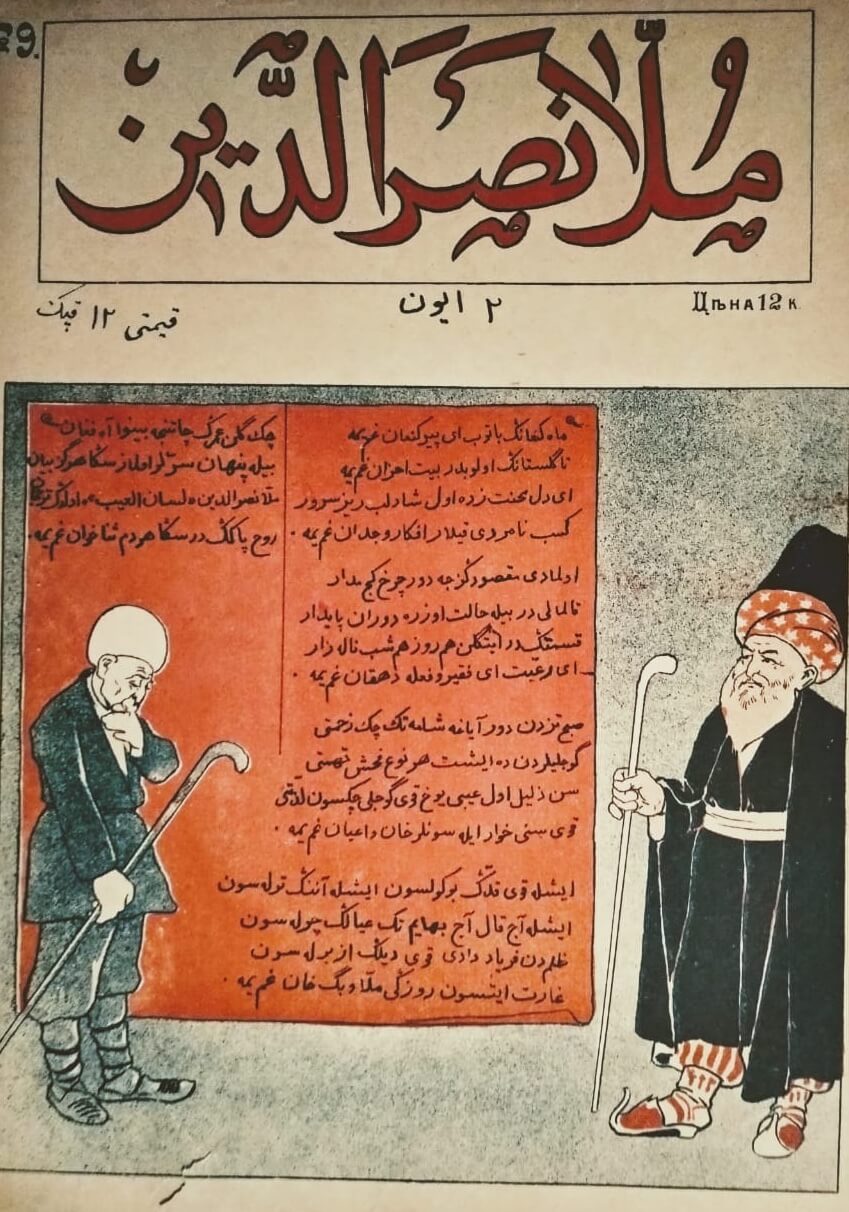 №9.
مُلّا نصرَالدّین
Цѣна 12 к.
۲ ایون
قیمتی ۱۲ قپک
ماه کنعانڭ باتوب ای پیر کنعان غم یمه
ای دل محنت زده اول شاد لبریز سرور
کسب نامردی قیلار افکار وجدان غم یمه.
اولمادی مقصودڭز جه دور چرخ کج مدار
قالمالی در بیله حالت اوزره دوران پایدار
قسمتڭ در هم روز هم شب ناله زار
ای رعیت ای فقیر و فعله دهقان غم یمه.
صبح تزدن دور آیاغه شامه تک چک زحمتی
گوجلیلردن ده ایشت هر نوع فحش تهمتی
سن ذلیل اول عیبی یوخ قوی گوجلی چکسون لذتی
قوی سنی خوار ایله سونلر خان و اعیان غم یمه.
ایشله قوی قدڭ بوکولسون ایشله آننڭ تر له سون
ایشله آج قال آج بهایم تک عیالڭ چوله سون
ظلمدن فریاد دادی قوی دیلڭ ازبرله سون
غارت ایتسون روزڭی ملا و بگ خان غم یمه.
بینوا آه فغان
بیله پنهان سوزلر اولماز سڭا هرگز بیان
ملا نصرالدین لسان الغیب اولدڭ
روح پاکڭ در سڭا هردم ثناخوان غم یمه.